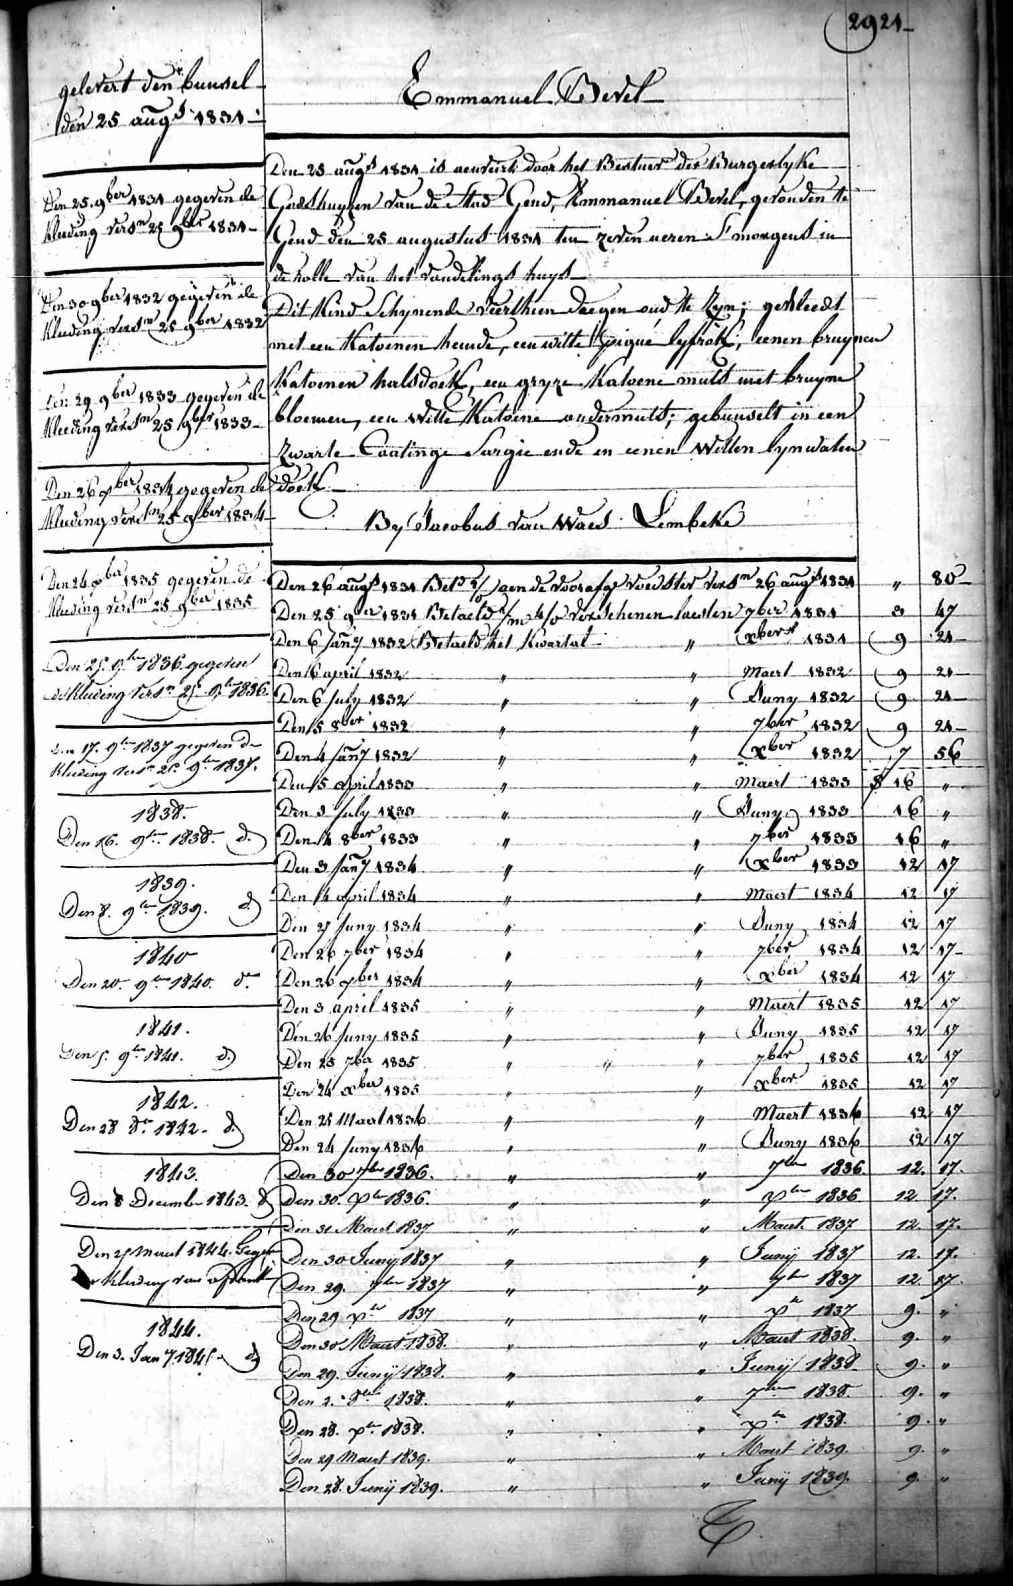 2921
Emmanuel Bevel
gelevert den bunsel
den 25 augt 1831
Den 25 augt 1831 is aenveirt door het Bestuer der Burgerlyke
Godshuysen van de Stad Gend, Emmanuel Bevel, gevonden te
Gend den 25 augustus 1831 ten zeven ueren S'morgens in
de rolle van het vondelings huys
Dit Kind Schynende Veerthien daegen oud te Zyn; gekleedt
met een Katoenen hemde, een witte piqué lyfrok, eenen bruynen
Katoenen halsdoek, een gryze Katoene muts met bruyne
bloemen, een Witte Katoene ondermuts; gebunselt in een
Zwarte Caatinge Sargie ende en eenen Witten lynwaten
doek
By Jacobus van Waes Lembeke
Den 25 9ber 1831 gegeven de
kleeding vers.n 25 9ber 1831
Den 30 9ber 1832 gegeven de
kleeding vers.m 25 9ber 1832
Den 29 9ber 1833 gegeven de
kleeding vers.m 25 9ber 1833
Den 26 9ber 1834 gegeven de
kleeding vers.m 25 9ber 1834
Den 24 9ber 1835 gegeven de
kleeding vers.m 25 9ber 1835
Den 25 9ber 1836 gegeven
de kleeding vers.m 25 9br 1836.
Den 17. 9ber 1837 gegeven de
kleeding vers.m 25. 9ber 1837.
1838.
Den 16. 9ber 1838. do
1839.
Den 8. 9ber 1839. do
1840
Den 20. 9ber 1840. do
1841.
Den 5. 9br 1841. do
1842.
Den 28 8br 1842. do
1843.
Den 8 December 1843. do
Den 25 Maert 1844. Gegev
kleeding van
1844.
Den 3. Jany 1845. do
Den 26 augt 1831 voedster vers.m 26 augt 1831 " 80
Den 25 9ber 1831 Betaeld verschenen laesten 7ber 1831 3 47
Den 6 Jany 1832 Betaeld het Kwartael " xber 1831 9 21
Den 16 april 1832 " " Maert 1832 9 21
Den 6 July 1832 " " Juny 1832 9 21
Den 15 8ber 1832 " " 7ber 1832 9 21
Den 4 Jany 1832 " " xber 1832 7 56
Den 15 april 1833 " " Maert 1833 16 "
Den 3 July 1833 " " Juny 1833 16 "
Den 14 8ber 1833 " " 7ber 1833 16 "
Den 3 Jany 1834 " " xber 1833 12 17
Den 14 april 1834 " " Maert 1834 12 17
Den 27 Juny 1834 " " Juny 1834 12 17
Den 26 7ber 1834 " " 7ber 1834 12 17
Den 26 xber 1834 " " xber 1834 12 17
Den 3 april 1835 " " Maert 1835 12 17
Den 26 Juny 1835 " " Juny 1835 12 17
Den 25 7ber 1835 " " " 7ber 1835 12 17
Den 24 xber 1835 " xber 1835 12 17
Den 25 Maert 1836 " " Maert 1836 12 17
Den 24 Juny 1836 " " Juny 1836 12 17
Den 30 7ber 1836. " " 7ber 1836 12. 17.
Den 30. xber 1836. " " xber 1836 12. 17.
Den 31 Maert 1837 " " Maert 1837 12. 17.
Den 30 Junij 1837 " " Junij 1837 12. 17.
Den 29. 7ber 1837 " " 7br 1837 12. 17.
Den 29 xbr 1837 " " xr 1837 9. "
Den 30 Maert 1838. " " Maert 1838. 9. "
Den 29. Junij 1838. " " Junij 1838 9. "
Den 2. 8ber 1838. " " 7ber 1838 9. "
Den 28. xbr. 1838. " " xbr 1838. 9. "
Den 29 Maert 1839. " " Maert 1839 9. "
Den 28. Junij 1839. " " Junij 1839 9. "